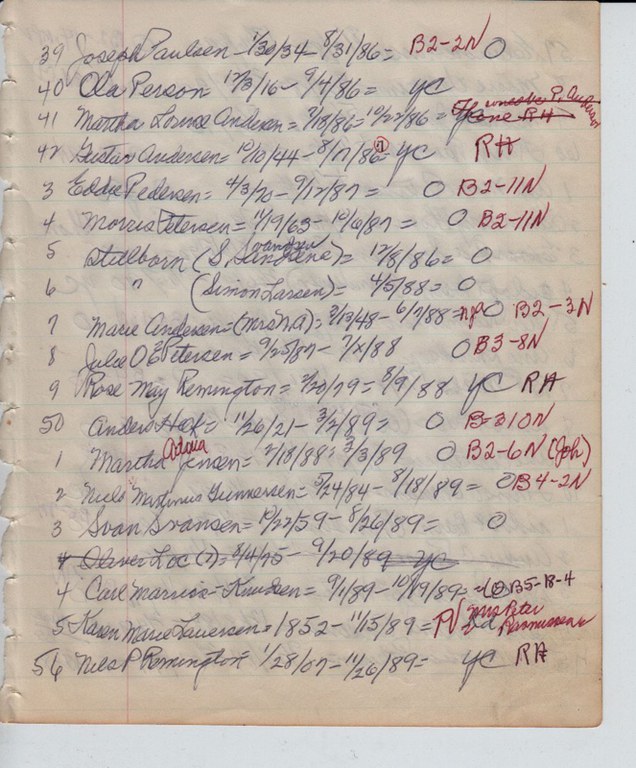 39 Joseph Paulsen - 1/30/34 - 8/31/86 = B2-2N O
40 Ola Person = 12/3/16 - 9/4/86 = yc
41 Martha Louise Andersen = 7/18/86 = 10/22/86 =
42 Gustav Andersen = 10/10/44 - 8/17/86 = yc RH
3 Eddie Pedersen = 4/3/70 - 9/12/87 = O B2-11N
4 Morris Petersen = 11/9/63 - 10/6/87 = O B2-11N
5 Stillborn (S. ) = 12/8/86 = O
6 " (Simon Larsen) = 4/5/88 = O
7 Marie Andersen = (Mrs N.A) = 2/13/48 - 6/7/88 = np O B2-3N
8 Julie O E Petersen = 9/25/87 - 7/x/88 O B3-8N
9 Rose May Remington = 2/20/79 = 8/9/88 yc RH
50 Anders Hof = 11/26/21 - 3/2/89 = O B-310N
1 Martha Jensen = 2/18/88 = 3/3/89 O B2-6N (Joh)
2 Niels Martinus Gunnersen = 5/24/84 - 8/18/89 = O B4-2N
3 Svan Svansen = 10/22/59 - 8/26/89 = O
4 Oliver Loc (?) = 8/4/75 - 9/20/89 yc
4 Carl Marius Knudsen = 9/1/89 - 10/19/89 = O B5-18-4
5 Karen Marie Laursen = 1852 - 11/15/89 = PV Mrs Peter
Rasmussen
56 Nels P Remington = 1/28/07 - 11/26/89 = yc RH